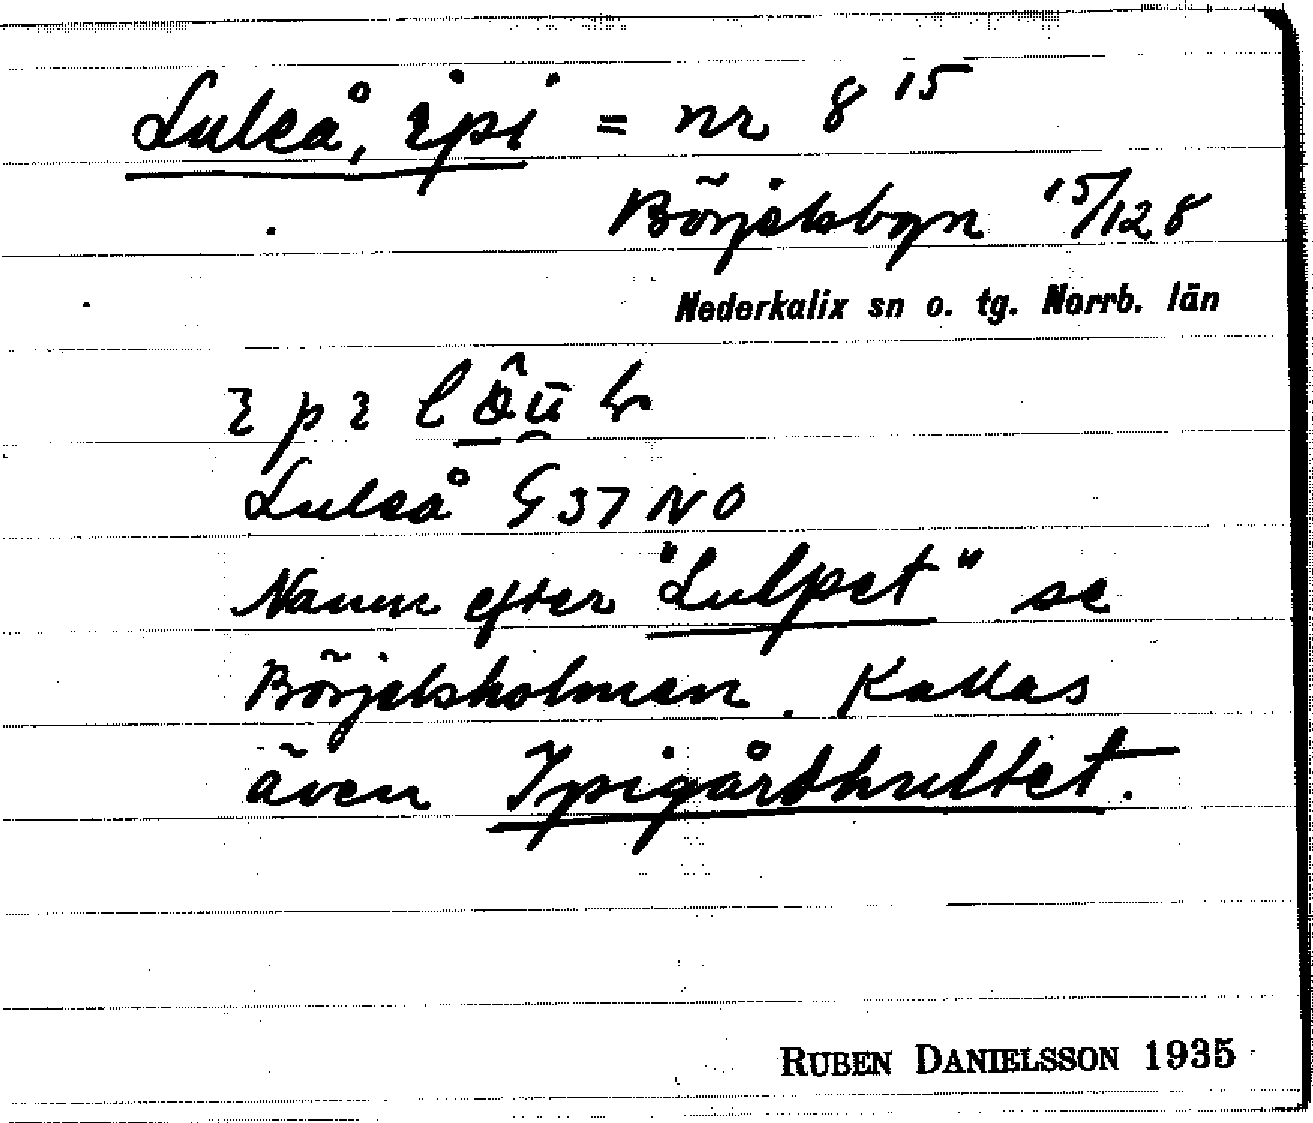 Luleå, ipi = nr 8 15
Börjelsbyn 15/128
Nederkalix sn o. tg. Norrb. län
Luleå G 37 NO
Namn efter "Lulpet" se
Börjelsholmen. Kallas
även Ipigårdhultet.
RUBEN DANIELSSON 1935